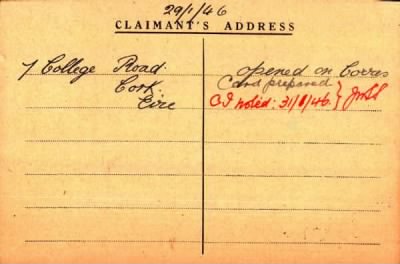 29/1/46
CLAIMANT'S ADDRESS
7 College Road.
Cork.
Eire
opened on Corres
Card prepared
C.I noted: 31/1/46.